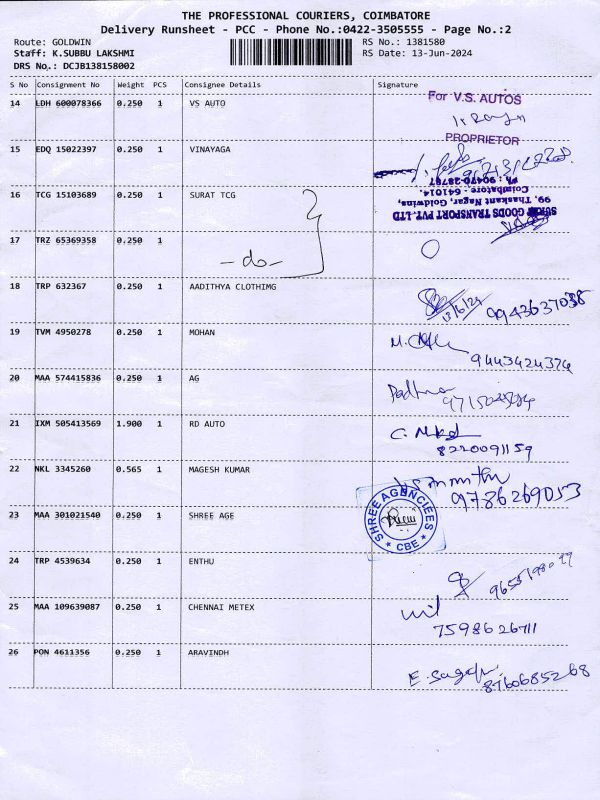 THE PROFESSIONAL COURIERS, COIMBATORE
Delivery Runsheet - PCC - Phone No.:0422-3505555 - Page No.:2
Route: GOLDWIN RS No.: 1381580
Staff: K.SUBBU LAKSHMI RS Date: 13-Jun-2024
DRS No.: DCJB138158002
S No Consignment No Weight PCS Consignee Details Signature
14 LDH 600078366 0.250 1 VS AUTO
For V.S. AUTOS
PROPRIETOR
15 EDQ 15022397 0.250 1 VINAYAGA
16 TCG 15103689 0.250 1 SURAT TCG
SURAT GOODS TRANSPORT PVT.LTD
99, Thaskant Nagar, Goldwins,
Coimbatore - 641014.
17 TRZ 65369358 0.250 1 -do-
18 TRP 632367 0.250 1 AADITHYA CLOTHIMG
13/6/24 9943637038
19 TVM 4950278 0.250 1 MOHAN
9443424374
20 MAA 574415836 0.250 1 AG
Padma
21 IXM 505413569 1.900 1 RD AUTO
8220091159
22 NKL 3345260 0.565 1 MAGESH KUMAR
9786269053
23 MAA 301021540 0.250 1 SHREE AGE
SHREE AGENCIEES
* CBE *
24 TRP 4539634 0.250 1 ENTHU
25 MAA 109639087 0.250 1 CHENNAI METEX
7598626711
26 PON 4611356 0.250 1 ARAVINDH
8760685268